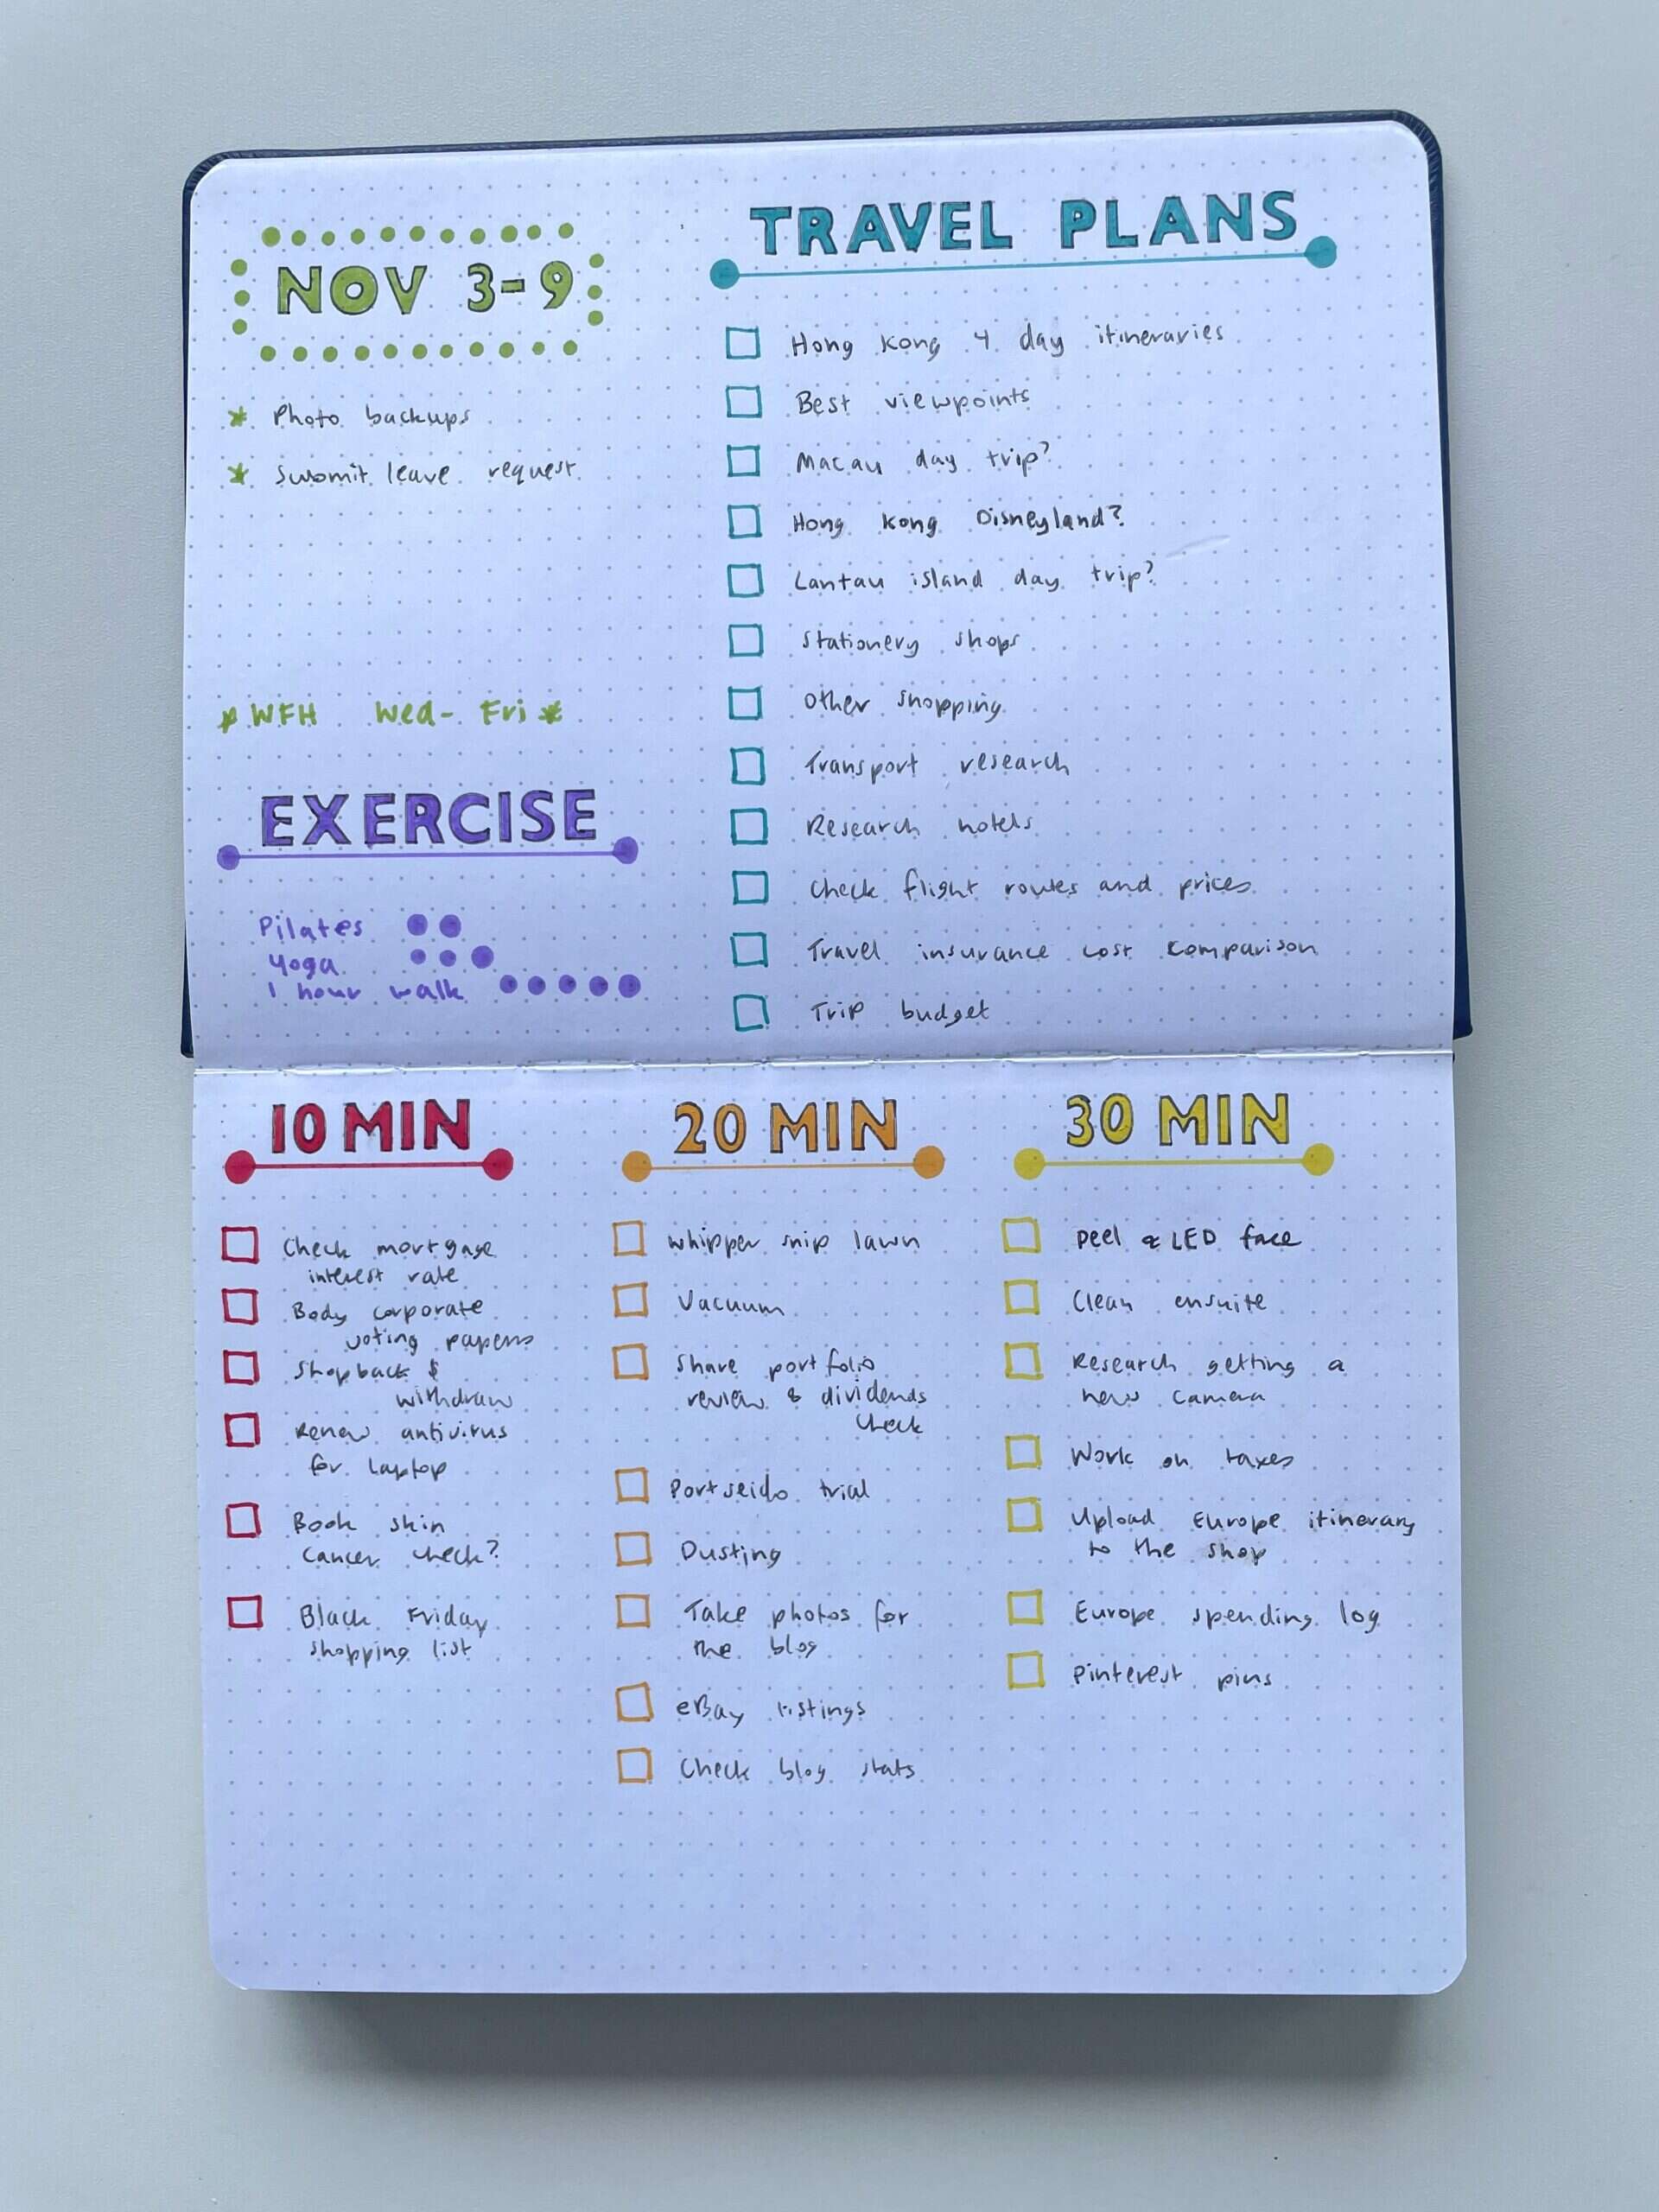 NOV 3-9
* Photo backups
* Submit leave request
* WFH Wed - Fri *
EXERCISE
Pilates
Yoga
1 hour walk
TRAVEL PLANS
Hong Kong 4 day itineraries
Best viewpoints
Macau day trip?
Hong Kong Disneyland?
Lantau island day trip?
Stationery shops
Other shopping
Transport research
Research hotels
Check flight routes and prices
Travel insurance cost comparison
Trip budget
10 MIN
Check mortgage
interest rate
Body corporate
voting papers
Shopback $
withdraw
Renew antivirus
for laptop
Book skin
cancer check?
Black Friday
shopping list
20 MIN
Whipper snip lawn
Vacuum
Share portfolio
review & dividends
check
Portseido trial
Dusting
Take photos for
the blog
eBay listings
Check blog stats
30 MIN
Peel & LED face
Clean ensuite
Research getting a
new camera
Work on taxes
Upload Europe itinerary
to the shop
Europe spending log
Pinterest pins